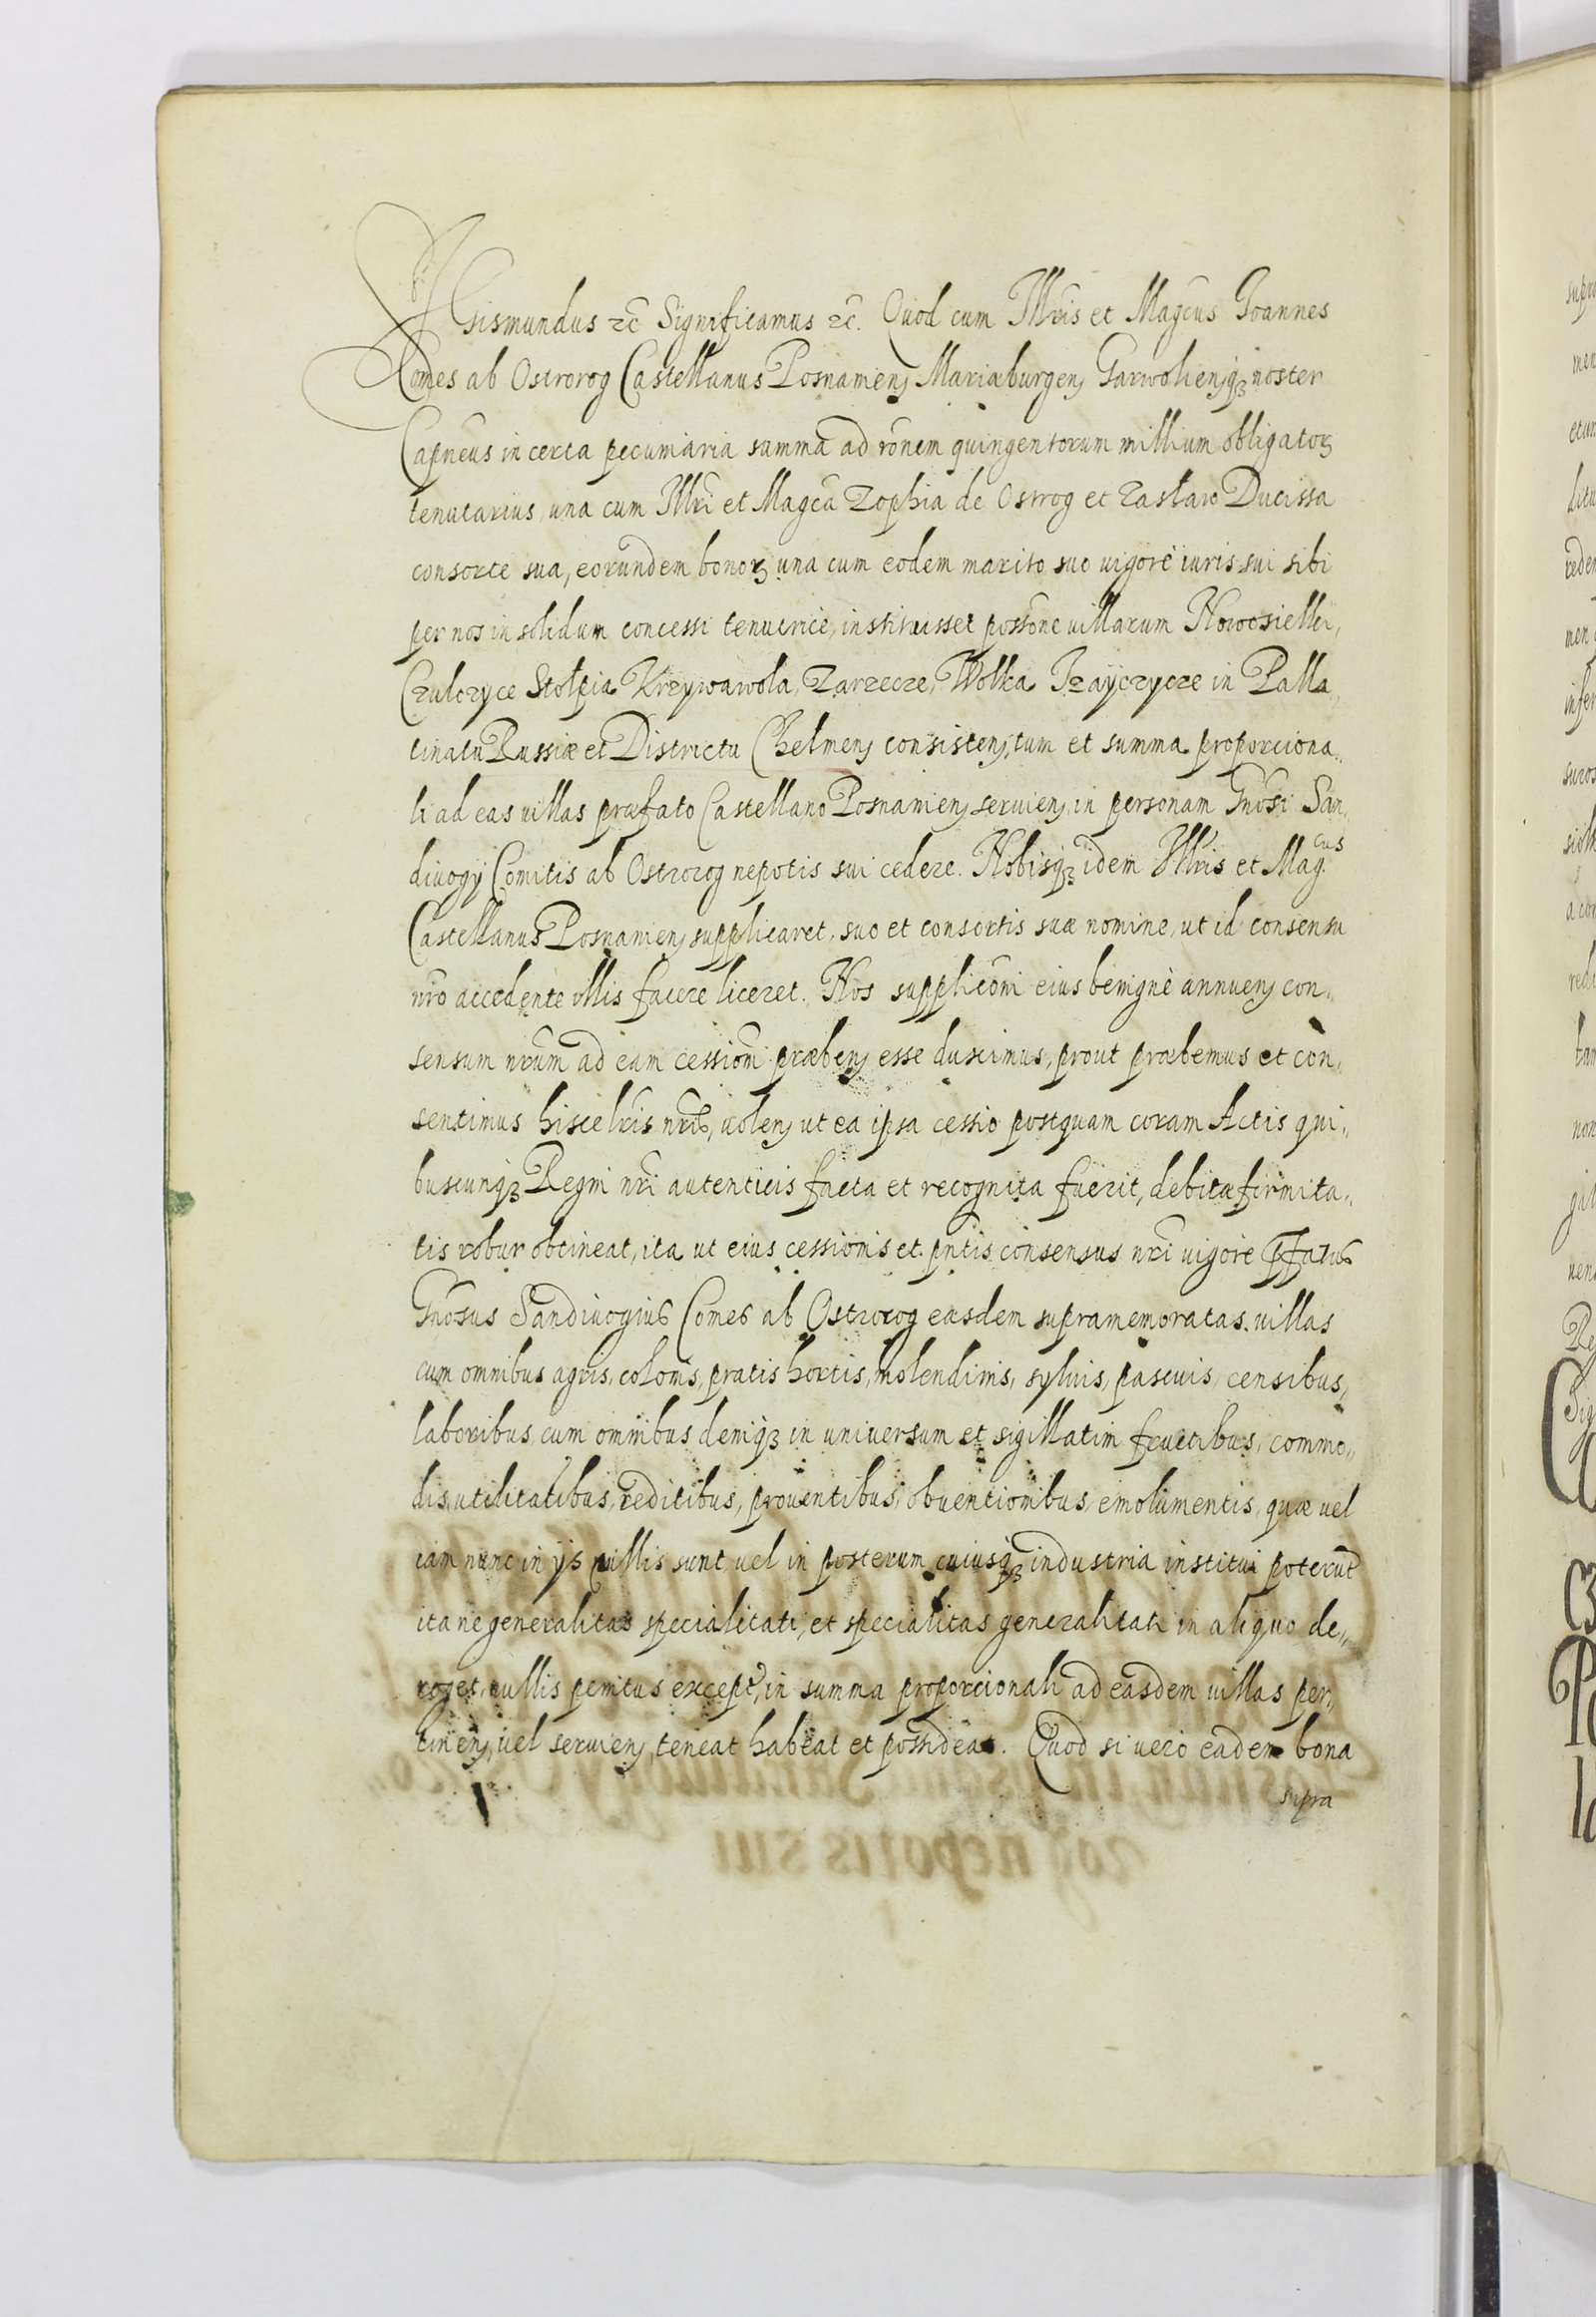 Sigismundus zc̄ Significamus zc̄. Quod cum Illr̄is et Magc̄us Joannes
Comes ab Ostrorog Castellanus Posnamienꝭ Mariaburgenꝭ Garwolienꝭqꝫ noster
Capn̄eus in certa pecuniaria summa ad rōnem quingentorum millium obligatoꝝ
tenutarius, una cum Illr̄i et Magc̄a Zophia de Ostrog et Zasław Ducissa
consorte sua, eorundem bonoꝝ una cum eodem marito suo uigore iuris sui sibi
per nos in solidum concessi tenutrice, instituisset possōne uillarum Nowosielki,
Czulczyce Stołpia Krzywawola, Zarzecze, Wolka Jzayczycze in Palla
tinatu Russiæ et Districtu Chelmenꝭ consistenꝭ, tum et summa proporciona„
li ad eas uillas præfato Castellano Posnamienꝭ seruienꝭ in personam Gn̄osi San„
diuogÿ Comitis ab Ostrorog nepotis sui cedere. Nobisqꝫ idem Illr̄is et Mag.cus
Castellanus Posnamienꝭ supplicaret, suo et consortis suæ nomine, ut id consensu
nr̄o accedente illis facere liceret. Nos supplicōni eius benignè annuenꝭ con„
sensum nr̄um ad eam cessiōni præbenꝭ esse duximus, prout præbemus et con„
sentimus hisce lr̄is nr̄is, uolenꝭ ut ea ipsa cessio postquam coram Actis qui„
buscunqꝫ Regni nr̄i autenticis facta et recognita fuerit, debitæ firmita„
tis robur obtineat, ita ut eius cessionis et pn̄tis consensus nr̄i uigore p̄fatus
Gn̄osus Sandiuogius Comes ab Ostrorog easdem supramemoratas uillas
cum omnibus agris, colonis, pratis hortis, molendinis, syluis, pascuis, censibus,
laboribus, cum omnibus deniqꝫ in uniuersum et sigillatim fructibus, commo„
dis, utilitatibus, reditibus, prouentibus, obuentionibus, emolumentis, quæ uel
iam nunc in ÿs uillis sunt, uel in posterum cuiusqꝫ industria institui poterūt
ita ne generalitas specialitati, et specialitas generalitati in aliquo de„
roget, nullis penitus except., in summa proporcionali ad easdem uillas per„
tinenꝭ, uel seruienꝭ, teneat habeat et possideat. Quod si uero eadem bona
supra